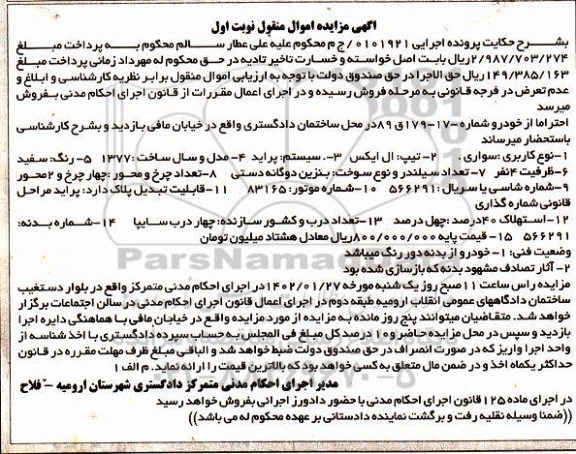 آگهی مزایده اموال منقول نوبت اول
بشرح حکایت پرونده اجرایی ۰۱۰۱۹۲۱/ج م محکوم علیه علی عطار سالم محکوم به پرداخت مبلغ
۲/۹۸۷/۷۰۳/۲۷۴ریال بابت اصل خواسته و خسارت تاخیر تادیه در حق محکوم له مهرداد زمانی پرداخت مبلغ
۱۴۹/۳۸۵/۱۶۳ریال حق الاجرا در حق صندوق دولت با توجه به ارزیابی اموال منقول برابر نظریه کارشناسی و ابلاغ و
عدم تعرض در فرجه قانونی به مرحله فروش رسیده و در اجرای اعمال مقررات از قانون اجرای احکام مدنی بفروش
میرسد
احتراما از خودرو شماره ۱۷-۱۷۹ق ۸۹در محل ساختمان دادگستری واقع در خیابان مافی بازدید و بشرح کارشناسی
باستحضار میرساند
۱-نوع کاربری :سواری. ۲- تیپ: ال ایکس ۳-. سیستم: پراید ۴- مدل و سال ساخت :۱۳۷۷ ۵- رنگ: سفید
۶-ظرفیت ۴نفر ۷- تعداد سیلندر و نوع سوخت: بنزین دوگانه دستی ۸-تعداد چرخ و محور :چهار چرخ و ۲محور
۹-شماره شاسی یا سریال :۵۶۶۲۹۱ ۱۰-شماره موتور: ۸۳۱۶۵ ۱۱-قابلیت تبدیل پلاک دارد: پراید مراحل
قانونی شماره گذاری
۱۲-استهلاک ۴۰درصد :چهل درصد ۱۳-تعداد درب و کشور سازنده: چهار درب سایپا ۱۴-شماره بدنه:
۵۶۶۲۹۱ ۱۵- قیمت پایه ۸۰۰/۰۰۰/۰۰۰ریال معادل هشتاد میلیون تومان
وضعیت فنی: ۱-خودرو از بدنه دور رنگ میباشد
۲- آثار تصادف مشهود بدنه که بازسازی شده بود
مزایده راس ساعت ۱۱صبح روز یک شنبه مورخه ۱۴۰۲/۰۱/۲۷در اجرای احکام مدنی متمرکز واقع در بلوار دستغیب
ساختمان دادگاههای عمومی انقلاب ارومیه طبقه دوم در اجرای اعمال قانون اجرای احکام مدنی در سالن اجتماعات برگزار
خواهد شد. متقاضیان میتوانند پنج روز مانده به مزایده از مورد مزایده واقع در خیابان مافی با هماهنگی دایره اجرا
بازدید و سپس در محل مزایده حاضر و۱۰ درصد کل مبلغ فی المجلس به حساب سپرده دادگستری با اخذ شناسه از
واحد اجرا واریز که در صورت انصراف در حق صندوق دولت ضبط خواهد شد و الباقی مبلغ ظرف مهلت مقرره در قانون
حداکثر یکماه اخذ و در ضمن مال متعلق به کسی خواهد بود که بالاترین قیمت را ارائه نماید. م الف ۱
مدیر اجرای احکام مدنی متمرکز دادگستری شهرستان ارومیه – فلاح
در اجرای ماده ۱۲۵قانون اجرای احکام مدنی با حضور دادورز اجرائی بفروش خواهد رسید
((ضمنا وسیله نقلیه رفت و برگشت نماینده دادستانی بر عهده محکوم له می باشد))